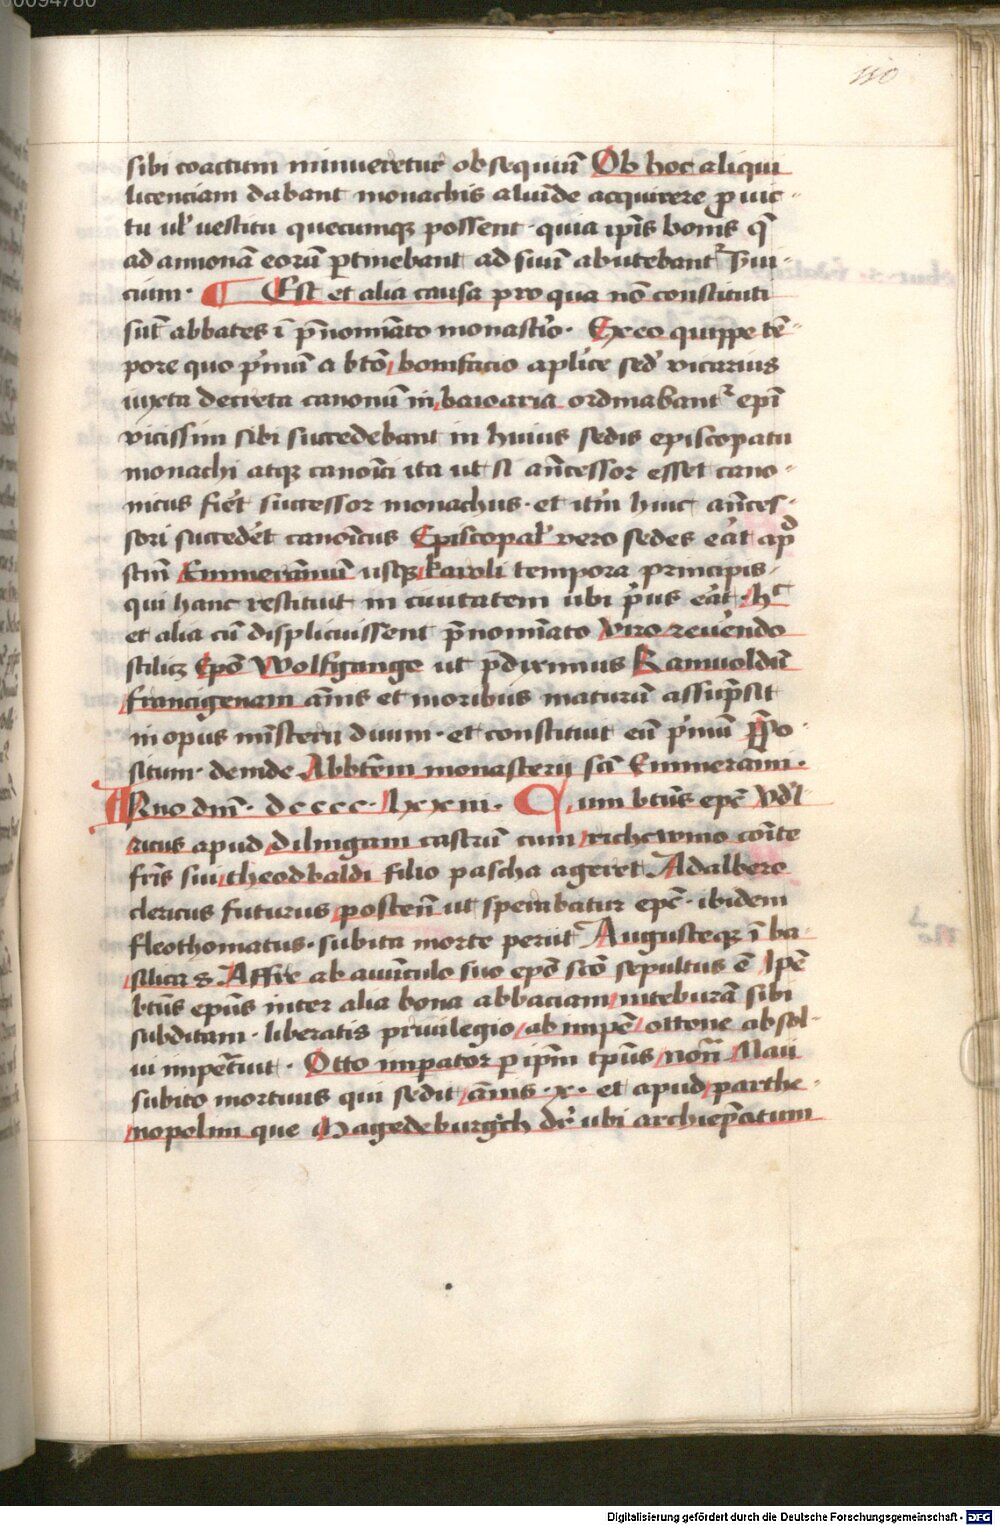 00094780
110
sibi coactum minueretur obsequiū Ob hoc aliqui
licenciam dabant monachis aliūde acquirere ꝓ uic-
tu ul' uestitu quecumqꝫ possent · quia ip̄is bonis q̄
ad annonā eorū ꝑtinebant ad suū abutebant᷑ s̄ui-
cium · ¶ Est et alia causa pro qua nō constituti
sūt abbates ī p̄nomīato monast'io · Ex eo quippe tē-
pore quo p'mū a btō bonifacio aplīce sed' vicarius
iuxta decreta canonū in baioaria ordinabant᷑ ep̄i
vicissim sibi succedebant in huius sedis episcopatu
monachi atqꝫ canoīci ita ut si an̄cessor esset cano-
nicus fiet' successor monachus · et itm̄ huic an̄ces-
sori succedet' canoīcus Episcopal' vero sedes eat' apd̄
scm̄ Emmeramū usqꝫ karoli tempora principis
qui hanc restituit in ciuitatem ubi p'us eat' · hc̄
et alia cū displicuissent p̄nomīato viro reuendo
scilicꝫ Ep̄o Wolfgango ut p̄diximus Ramuoldū
francigenam an̄is et moribus maturū assūpsit
in opus mīsterii diuini · et constituit eū p'mū p̄po-
situm · deinde Abbtēm monasterij scī Emmerāmi ·
Anno dm̄ · dcccc · lxxiii · Cum btūs ep̄c vdl'-
ricus apud dilingam castrū cum richewino coīte
fr̄is sui theodbaldi filio pascha ageret Adalbero
clericus futurus posteū ut sperabatur ep̄c · ibidem
fleothomatus · subita morte periit Augusteqꝫ ī ba-
silica s· Affre ab auūculo suo ep̄o scō sepultus ē Ip̄e
btūs ep̄us inter alia bona abbaciam uteburā sibi
subditam · liberatis priuilegio ab impē ottone absol-
ui impet̄uit · Otto impator ꝑ ip̄m tp̄us non̄ Maii
subito mortuus qui sedit an̄is · x · et apud parthe-
nopolim que Magedeburgch dr̄ ubi archiep̄atum
Digitalisierung gefördert durch die Deutsche Forschungsgemeinschaft - DFG